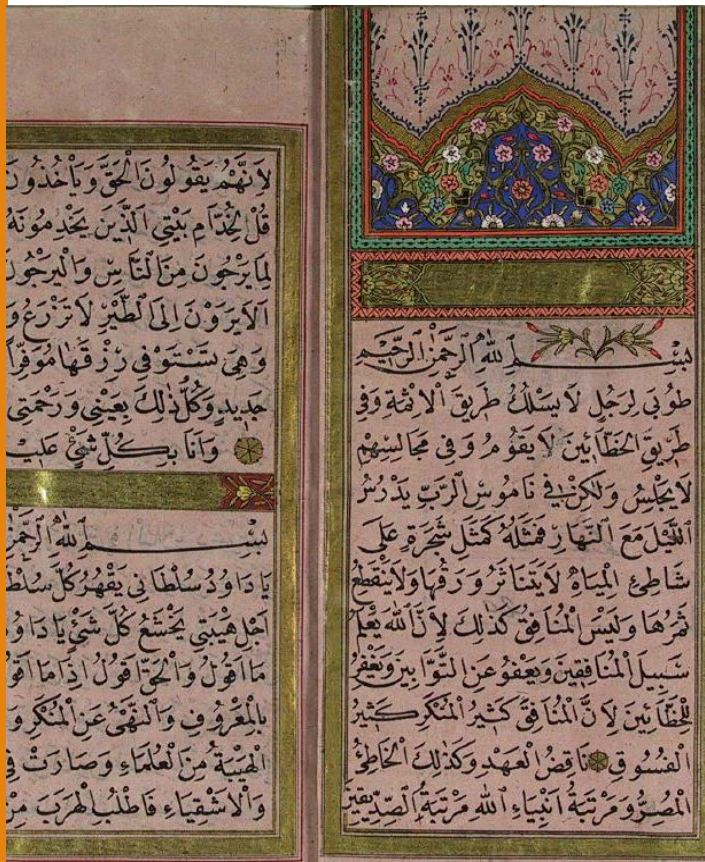 بِسْمِ اللهِ الرَّحْمٰنِ الرَّحِيْمِ
طُوبَى لِرَجُلٍ لَا يَسْلُكُ طَرِيقَ الْأَثَمَةِ وَفِي
طَرِيقِ الْخَطَّائِينَ لَا يَقُومُ وَفِي مَجَالِسِهِمْ
لَا يَجْلِسُ وَلَكِنْ فِي نَامُوسِ الرَّبِّ يَدْرُسُ
اللَّيْلَ مَعَ النَّهَارِ فَمَثَلُهُ كَمَثَلِ شَجَرَةٍ عَلَى
شَاطِئِ الْمِيَاهِ لَا يَتَنَاثَرُ وَرَقُهَا وَلَا يَنْقَطِعُ
ثَمَرُهَا وَلَيْسَ الْمُنَافِقُ كَذَلِكَ لِأَنَّ اللهَ يَعْلَمُ
سَبِيلَ الْمُنَافِقِينَ وَيَعْفُو عَنِ التَّوَّابِينَ وَيَغْفِرُ
لِلْخَطَّائِينَ لِأَنَّ الْمُنَافِقَ كَثِيرُ الْمُنْكَرِ كَثِيرُ
الْفُسُوقِ نَاقِضُ الْعَهْدِ وَكَذَلِكَ الْخَاطِئُ
الْمُصِرُّ وَمَرْتَبَةُ أَنْبِيَاءِ اللهِ مَرْتَبَةُ الصِّدِّيقِينَ
لِأَنَّهُمْ يَقُولُونَ الْحَقَّ وَيَأْخُذُونَ
قُلْ لِخُدَّامِ بَيْتِي الَّذِينَ يَخْدِمُونَهُ
لِمَا يَرْجُونَ مِنَ النَّاسِ وَالْيَرْجُونَ
أَلَا يَرَوْنَ إِلَى الطَّيْرِ لَا تَزْرَعُ وَ
وَهِيَ تَسْتَوْفِي رِزْقَهَا مُوَفَّرًا
جَدِيدٍ وَكُلُّ ذَلِكَ بِعَيْنِي وَرَحْمَتِي
وَأَنَا بِكُلِّ شَيْءٍ عَلِيـ
بِسْمِ اللهِ الرَّحْمٰنِ
يَا دَاوُدُ سُلْطَانِي يَقْهَرُ كُلَّ
هَيْبَتِي يَخْشَعُ كُلُّ شَيْءٍ يَا دَاوُ
مَا أَقُولُ وَالْحَقَّ أَقُولُ إِذَا مَا
بِالْمَعْرُوفِ وَالنَّهْيُ عَنِ الْمُنْكَرِ وَ
الْهَيْبَةُ مِنَ الْعُلَمَاءِ وَصَارَتْ فِي
وَالْأَشْقِيَاءِ فَاطْلُبِ الْهَرَبَ مِنْ